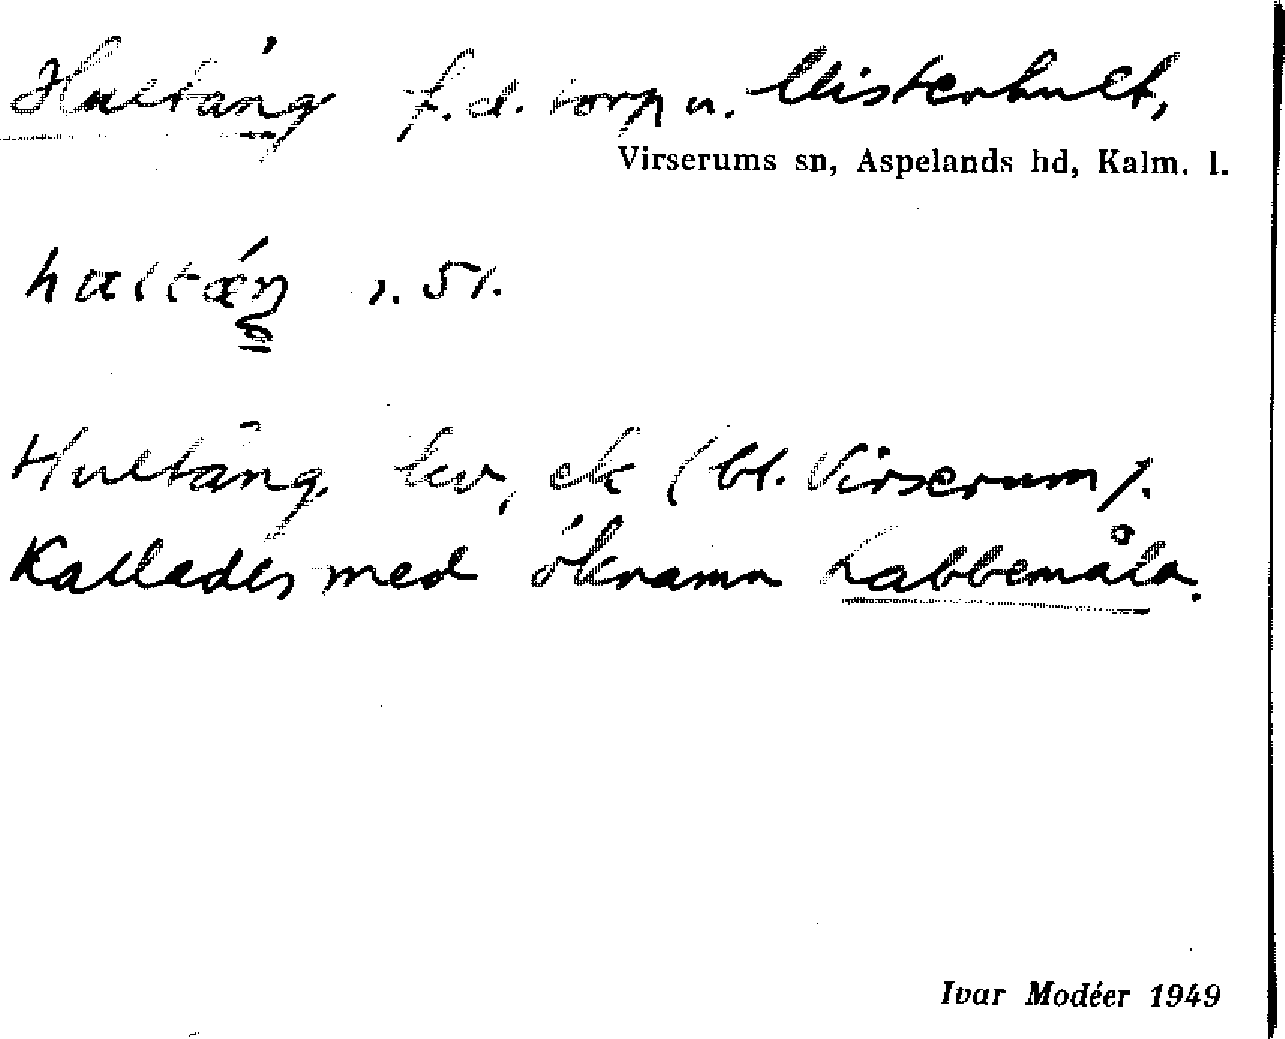 Hultäng f.d. torp u. Misterhult,
Virserums sn, Aspelands hd, Kalm. l.
s. 51.
Hultäng, tw, ek (bl. Virserum).
Kallades med öknamn Labbemåla.
Ivar Modéer 1949